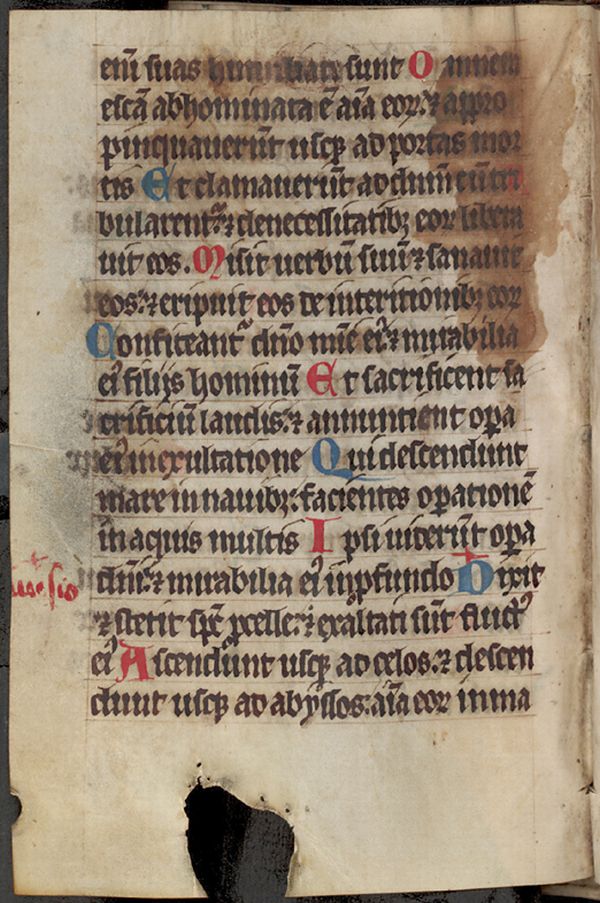 eni̅ suas humiliati sunt Omnem
esca̅ abhominata e̅ ai̅a eor: ⁊ appro
pinquaueru̅t usq; ad portas mor
tis Et clamaueru̅t ad dnm̅ cu̅ tri
bularent᷑: ⁊ de necessitatib; eor libera
uit eos. Misit uerbu̅ suu̅ ⁊ sanauit
eos: ⁊ eripuit eos de interitionib; eor
Confiteant᷑ dn̅o mi̅e ei᷒ ⁊ mirabilia
ei᷒ filijs hominu̅ Et sacrificent sa
crificiu̅ laudis: ⁊ annuntient opa̅
ei᷒ in exultatione Qui descendunt
mare in nauib;: facientes operatione̅
in aquis multis Ipsi uideru̅t opa̅
dni̅: ⁊ mirabilia ei᷒ in pfundo Dixit
⁊ stetit spe̅ pcelle: ⁊ exaltati su̅t fluct᷒
ei᷒ Ascendunt usq; ad celos: ⁊ descen
dunt usq; ad abyssos: ai̅a eor in ma